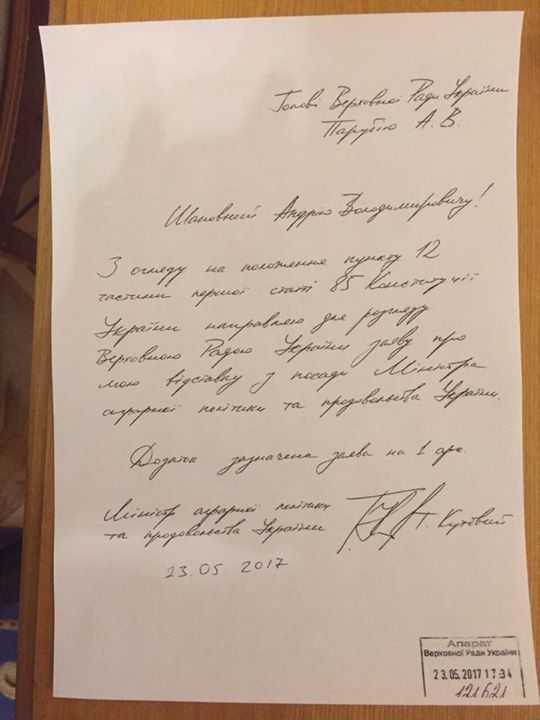 Голові Верховної Ради України
Парубію А. В.
Шановний Андрію Володимировичу!
З огляду на положення пункту 12
частини першої статті 85 Конституції
України направляю для розгляду
Верховною Радою України заяву про
мою відставку з посади Міністра
аграрної політики та продовольства України.
Додаток зазначена заява на 1 арк.
Міністр аграрної політики
та продовольства України
Т. Кутовий
23.05 2017
Апарат
Верховної Ради України
23.05.2017 17:34
121621